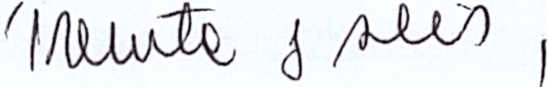 Treinta y seis,